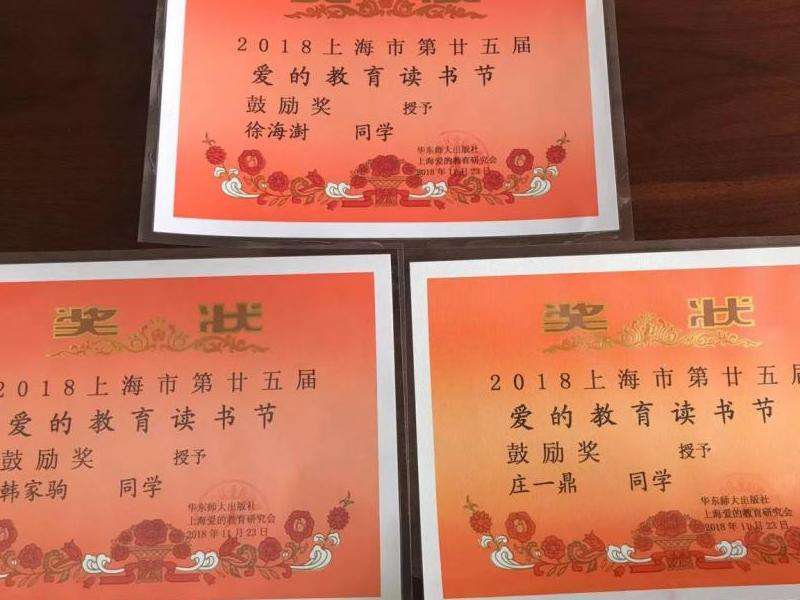 2018上海市第廿五届
爱的教育读书节
鼓励奖 授予
徐海澍 同学
华东师大出版社
上海爱的教育研究会
2018年11月23日
奖 状
2018上海市第廿五届
爱的教育读书节
鼓励奖 授予
韩家驹 同学
华东师大出版社
上海爱的教育研究会
2018年11月23日
奖 状
2018上海市第廿五届
爱的教育读书节
鼓励奖 授予
庄一鼎 同学
华东师大出版社
上海爱的教育研究会
2018年11月23日